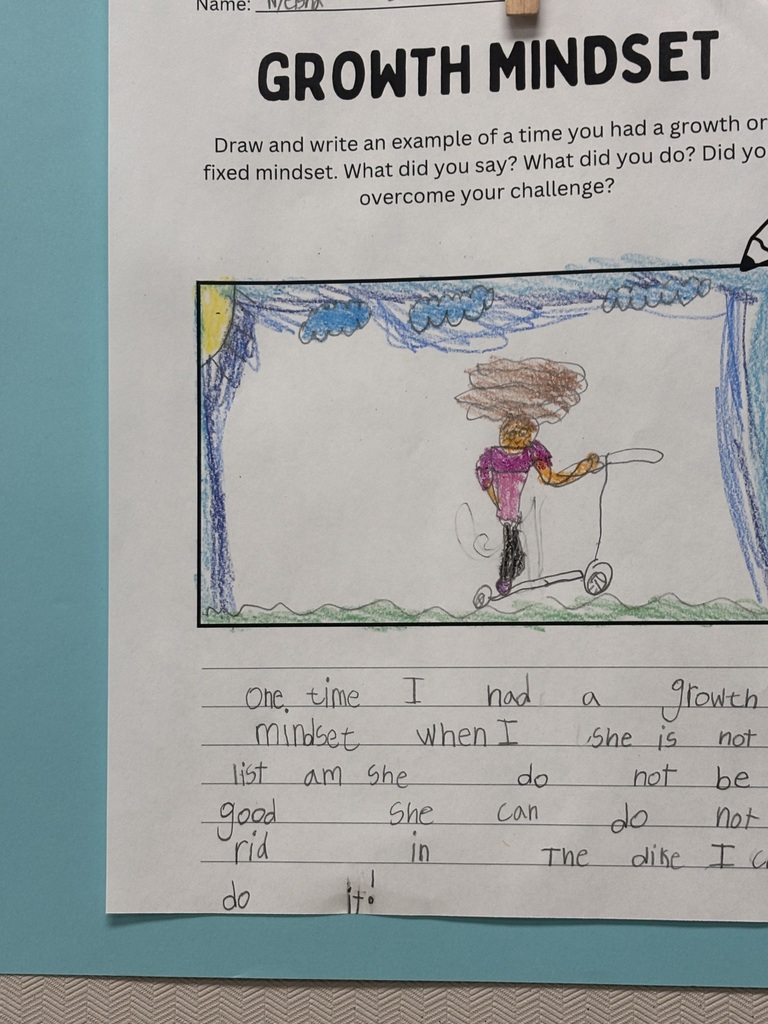 Name:
GROWTH MINDSET
Draw and write an example of a time you had a growth or
fixed mindset. What did you say? What did you do? Did yo
overcome your challenge?
One time I had a growth
mindset when I she is not
list am she do not be
good she can do not
rid in The dike I c
do it!